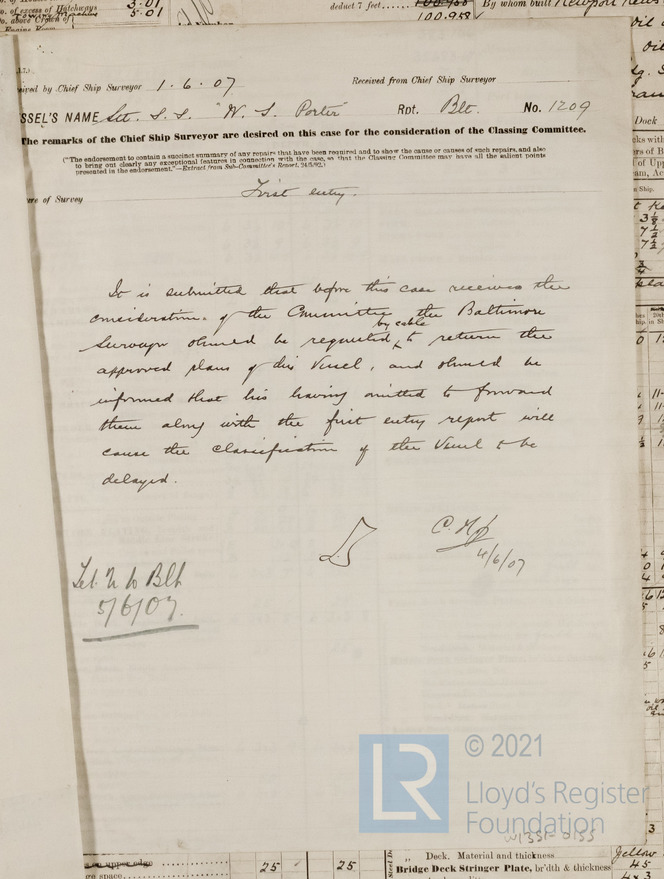 No. of excess of Hatchways 3.01
No. above Crown of 5.01
Engine Room
deduct 7 feet 100.958
100.958
By whom built Newport News
17.)
ived by Chief Ship Surveyor 1.6.07 Received from Chief Ship Surveyor
SSEL'S NAME Stl. S.S. "W. S. Porter" Rpt. Blt. No. 1209
The remarks of the Chief Ship Surveyor are desired on this case for the consideration of the Classing Committee.
("The endorsement to contain a succinct summary of any repairs that have been required and to show the cause or causes of such repairs, and also
to bring out clearly any exceptional features in connection with the case, so that the Classing Committee may have all the salient points
presented in the endorsement."—Extract from Sub-Committee's Report, 24/5/92.)
ure of Survey First entry.
It is submitted that before this case receives the
consideration of the Committee the Baltimore
by cable
Surveyor should be requested to return the
approved plans of this Vessel, and should be
informed that his having omitted to forward
them along with the first entry report will
cause the classification of the Vessel to be
delayed.
4/6/07
Blt
5/6/07.
LR © 2021
Lloyd's Register
Foundation
W1335F-0155
on upper edge 25 25
ge space
Deck. Material and thickness Yellow
Bridge Deck Stringer Plate, br'dth & thickness 45